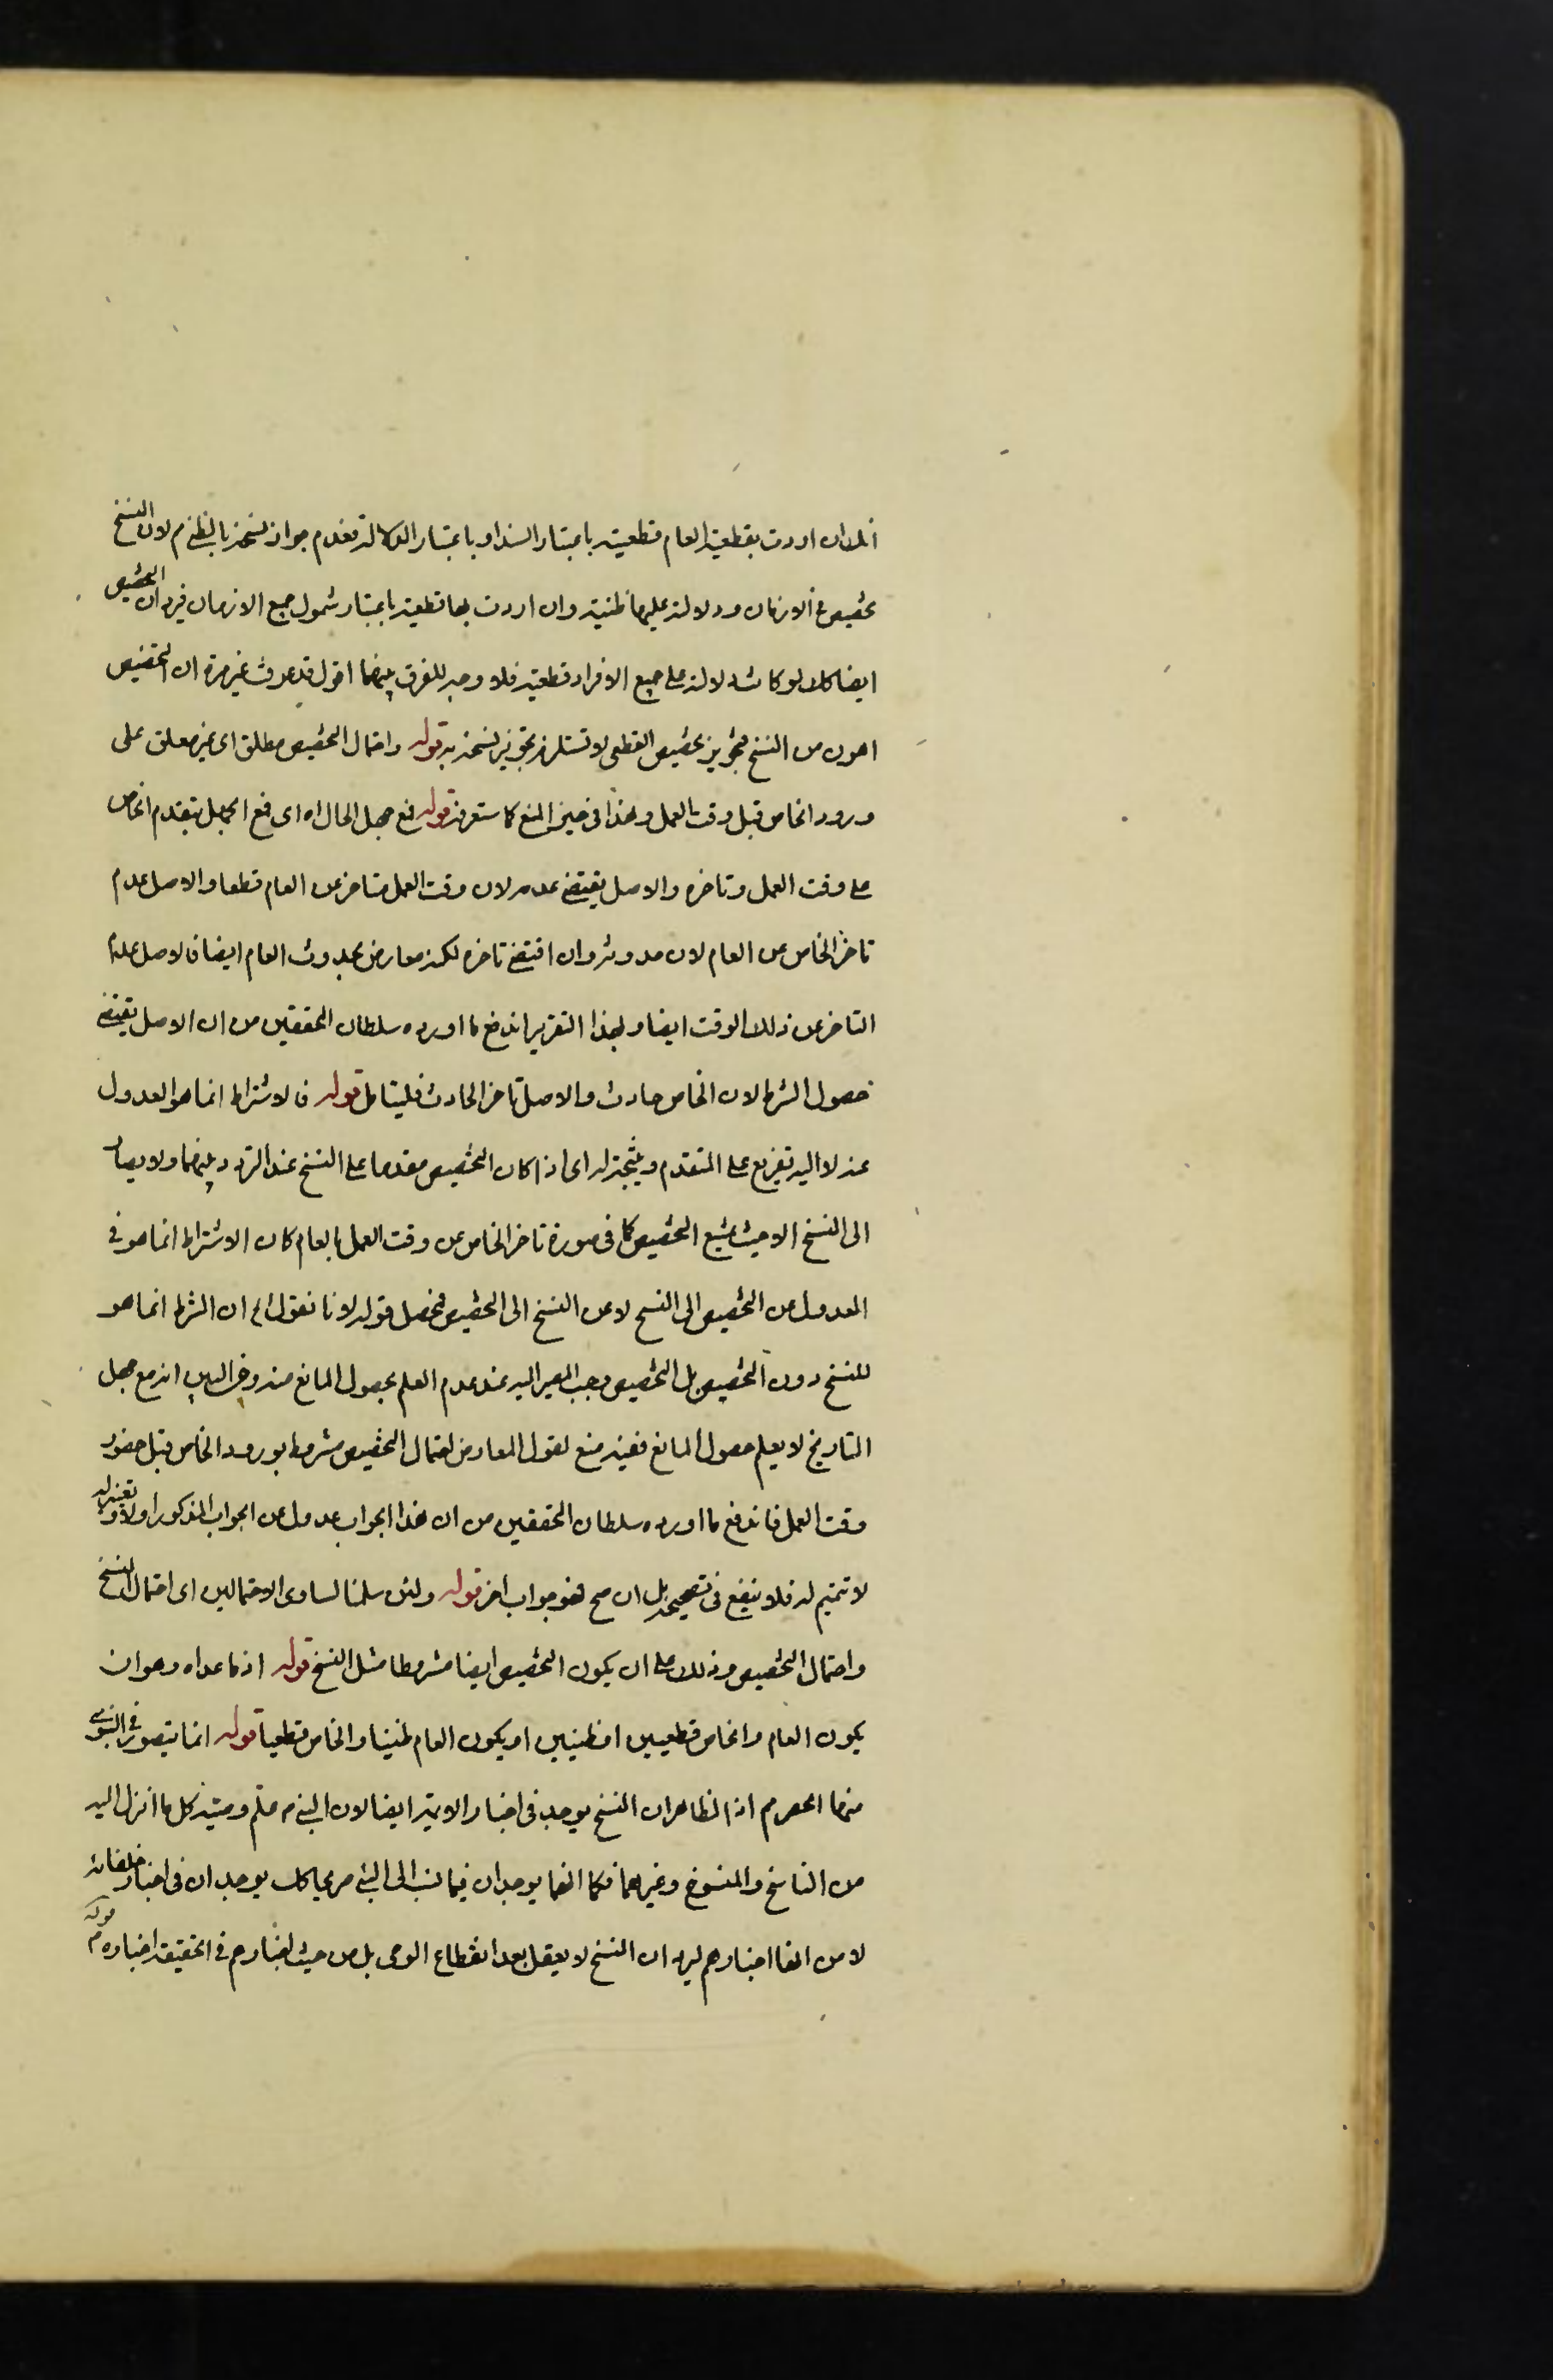 انك ان اردت بقطعية العام قطعيته باعتبار السند او باعتبار الدلالة فعدم جواز نسخه بالظني م لان النسخ
تخصيص في الازمان ودلالته عليها ظنية وان اردت بها قطعيته باعتبار شمول جميع الازمان فيرد ان التخصيص
ايضا كك لو كانت دلالته على جميع الافراد قطعية فلا وجه للفرق بينهما اقول قد عرفت غير مرة ان التخصيص
اهون من النسخ فتجويز تخصيص القطعي لا تستلزم تجويز نسخه به قوله واحتمال التخصيص مطلق اى غير معلق على
ورود الخاص قبل وقت العمل وهذا في حيز المنع كما ستعرفه قوله فمع جهل الحال اه اى فمع الجهل بتقدم الخاص
على وقت العمل وتاخره والاصل يقتضي عدمه لان وقت العمل متاخر عن العام قطعا والاصل عدم
تاخر الخاص عن العام لان حدوثه وان اقتضى تاخره لكنه معارض بحدوث العام ايضا فالاصل عدم
التاخر عن ذلك الوقت ايضا وبهذا التقرير اندفع ما اورده سلطان المحققين من ان الاصل يقتضي
حصول الشرط لان الخاص حادث والاصل تاخر الحادث فليتامل قوله فالاشتراط انما هو العدول
عنه لا اليه تفريع على المتقدم ونتيجة له اى اذا كان التخصيص مقدما على النسخ عند التردد بينهما ولا يصار
الى النسخ الا حيث يمتنع التخصيص كما في صورة تاخر الخاص عن وقت العمل بالعام كان الاشتراط انما هو في
العدول عن التخصيص الى النسخ لا عن النسخ الى التخصيص فحصل قوله لانا نقول اه ان الشرط انما هو
للنسخ دون التخصيص بل التخصيص وجب المصير اليه عند عدم العلم بحصول المانع منه ومن البين انه مع جهل
التاريخ لا يعلم حصول المانع ففيه منع لقول المعارض احتمال التخصيص مشروط بورود الخاص قبل حضور
وقت العمل فاندفع ما اورده سلطان المحققين من ان هذا الجواب عدول عن الجواب المذكور اولا وتغيير له
لا تتميم له فلا ينفع في تصحيحه بل ان صح فهو جواب اخر قوله ولئن سلمنا تساوى الاحتمالين اى احتمال النسخ
واحتمال التخصيص وذلك على ان يكون التخصيص ايضا مشروطا مثل النسخ قوله اذ ما عداه وهو ان
يكون العام والخاص قطعيين او ظنيين او يكون العام ظنيا والخاص قطعيا قوله انما يتصور في النبوي
منها الحصر م اذ الظاهر ان النسخ يوجد في اخبار الائمة ايضا لان النبي م علم وصيه كل ما انزل اليه
من الناسخ والمنسوخ وغيرهما فكما انهما يوجدان فيما نسب الى النبي صريحا كك يوجدان في اخبار خلفائه
لا من انها اخبارهم ليرد ان النسخ لا يعقل بعد انقطاع الوحى بل من حيث اخبارهم في الحقيقة اخباره م
قوله